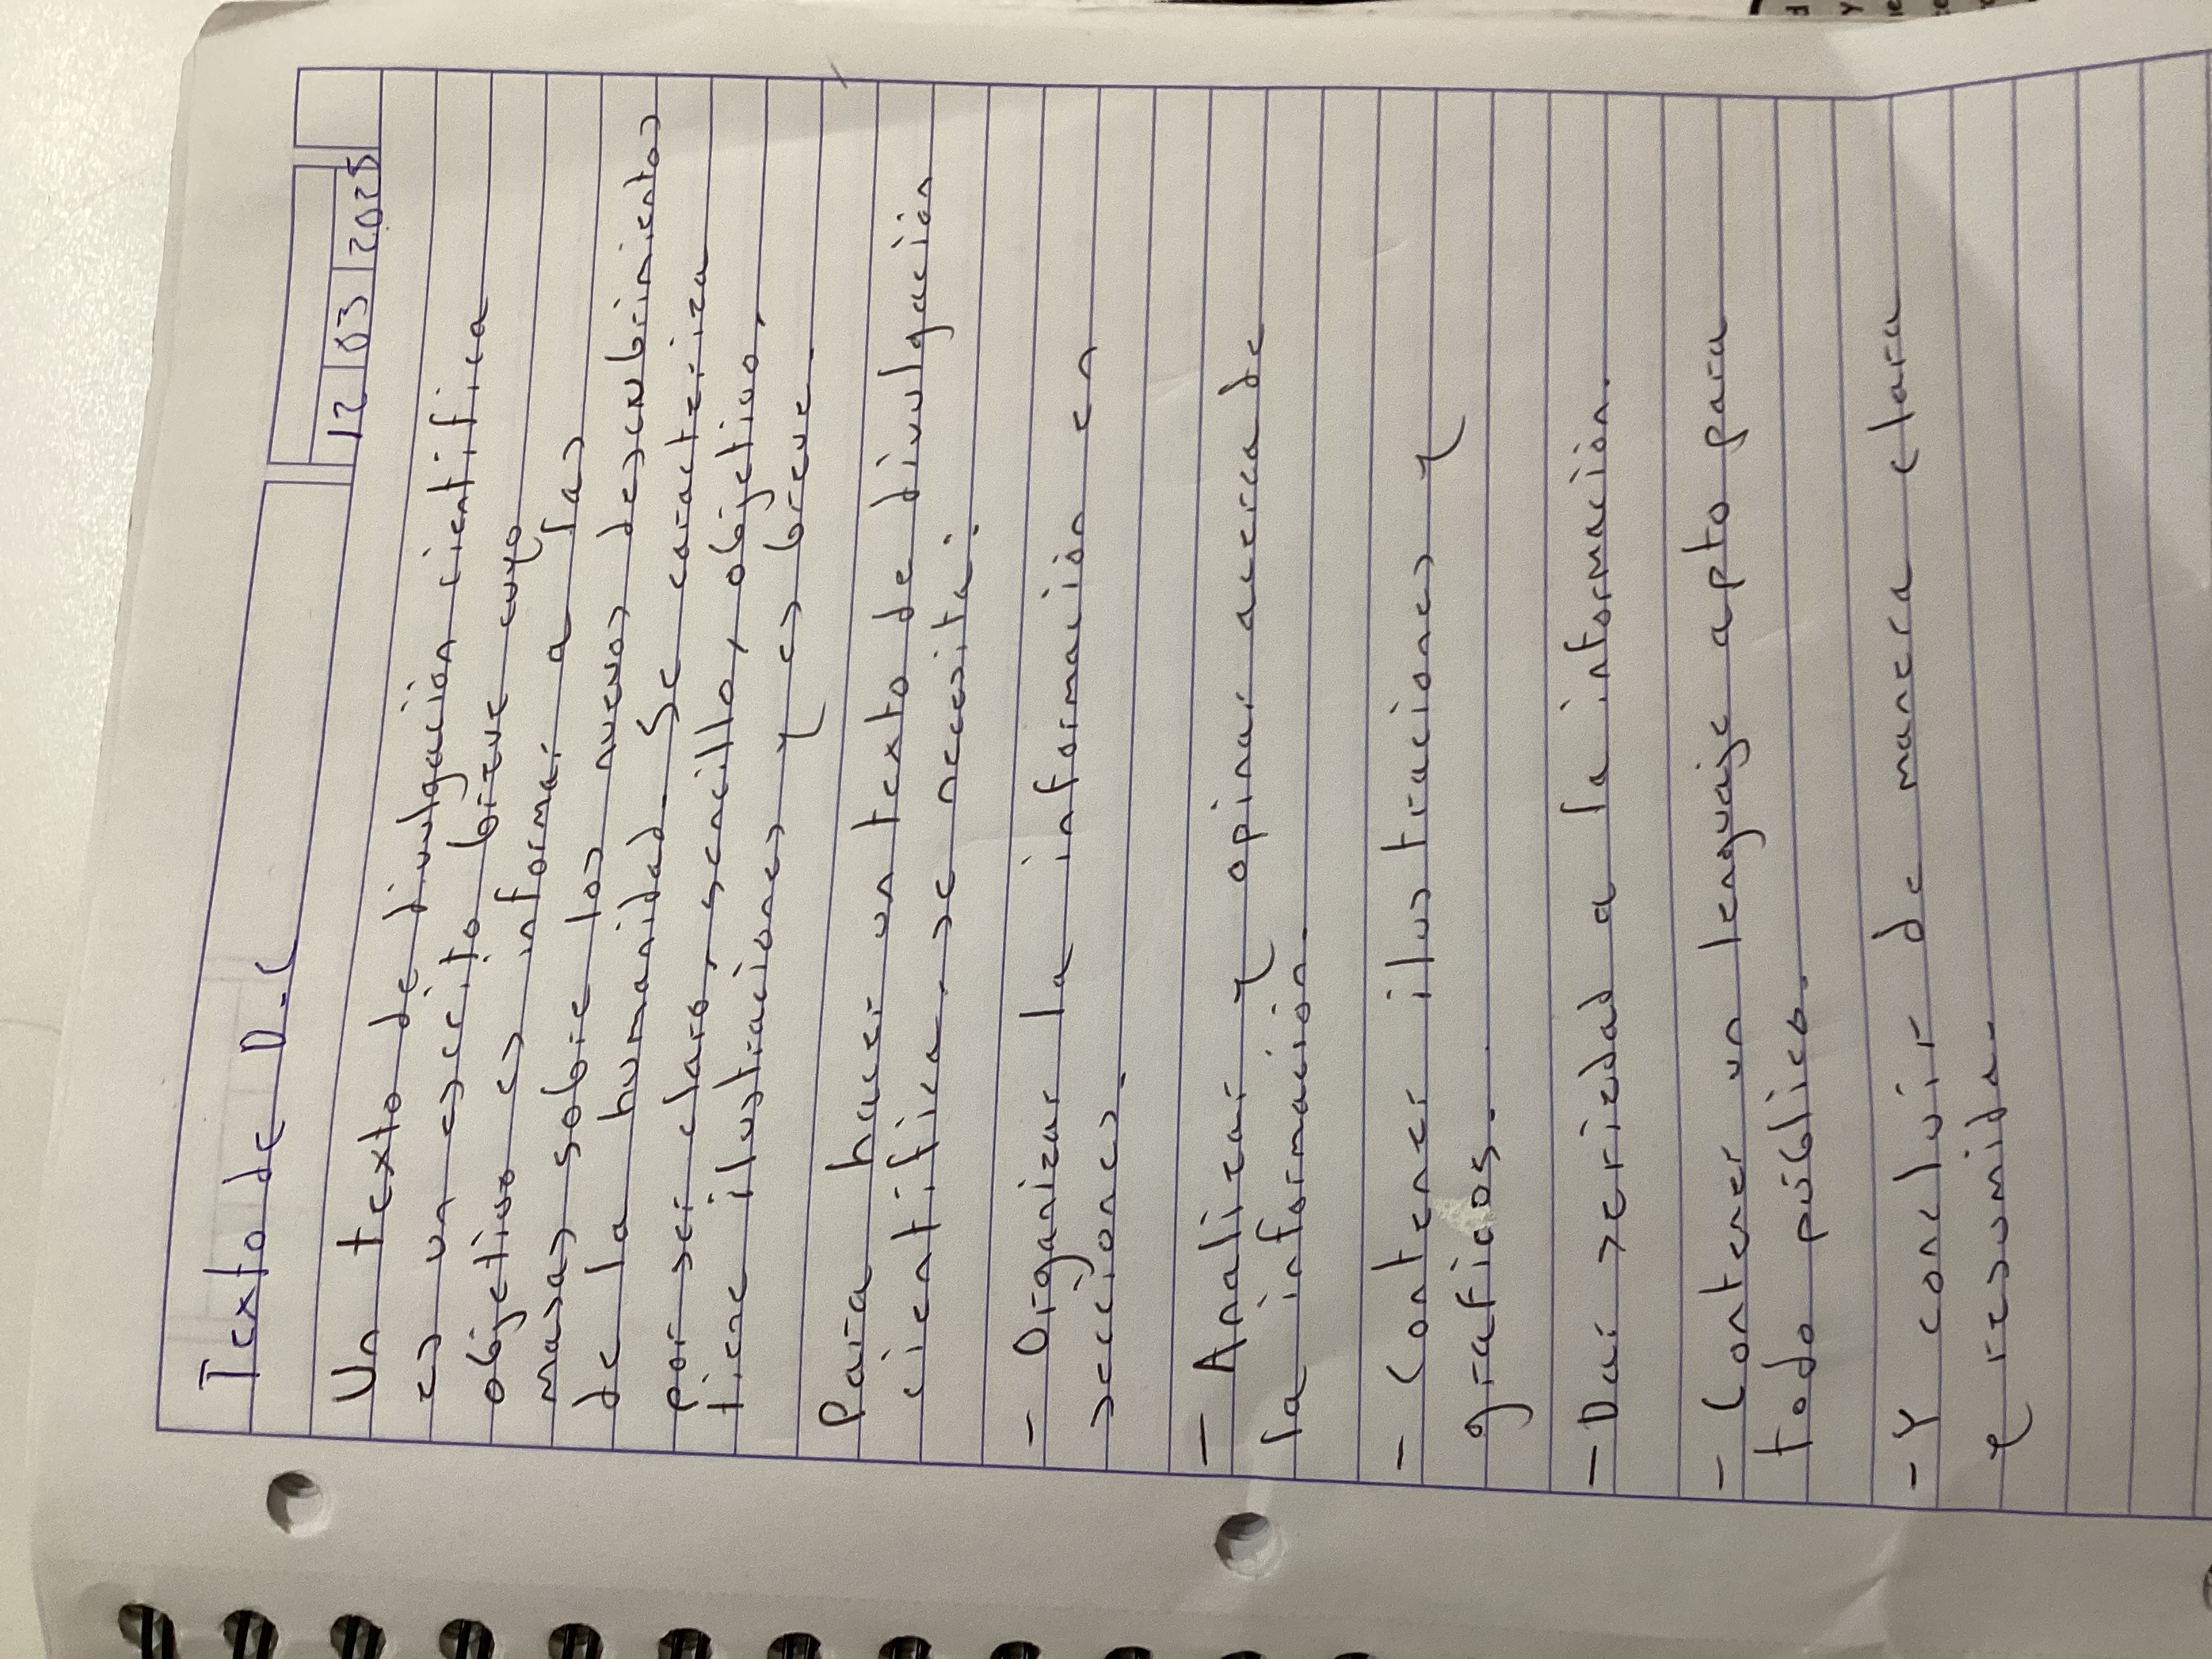 Texto de D.C
12 03 2025
Un texto de divulgación cientifica
es un escrito breve cuyo
objetivo es informar a las
masas sobre los nuevos descubrimientos
de la humanidad. Se caracteriza
por ser claro, sencillo, objetivo,
tiene ilustraciones y es breve.
Para hacer un texto de divulgación
cientifica, se necesita:
- Organizar la información en
secciones.
- Analizar y opinar acerca de
la información.
- Contener ilustraciones y
graficos.
- Dar seriedad a la información.
- Contener un lenguaje apto para
todo público.
- Y concluir de manera clara
y resumida.